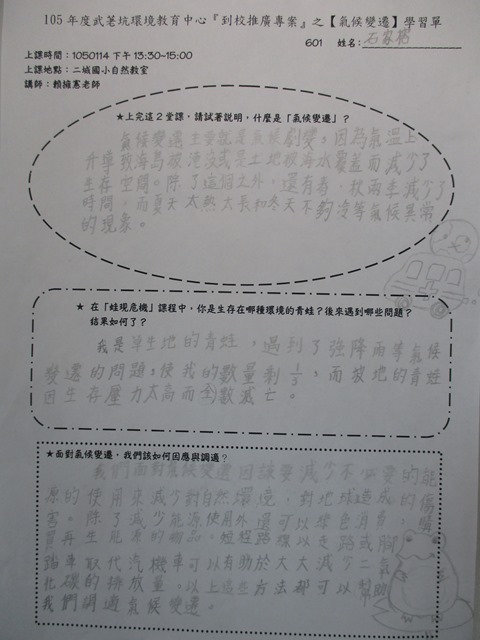 105 年度武荖坑環境教育中心『到校推廣專案』之【氣候變遷】學習單
601 姓名:石家
上課時間：1050114 下午 13:30~15:00
上課地點：二城國小自然教室
講師：賴擁憲老師
★上完這 2 堂課，請試著說明，什麼是「氣候變遷」？
氣候變遷主要就是氣候劇變，因為氣溫上
升導致海島被淹沒或是土地被海水覆蓋而減少了
生存空間。除了這個之外，還有春、秋兩季減少了
時間，而夏天太熱太長和冬天不夠冷等氣候異常
的現象。
★ 在「蛙現危機」課程中，你是生存在哪種環境的青蛙？後來遇到哪些問題？
結果如何了？
我是草生地的青蛙，遇到了強降雨等氣候
變遷的問題，使我的數量剩1/5，而坡地的青蛙
因生存壓力太高而全數滅亡。
★面對氣候變遷，我們該如何因應與調適？
我們面對氣候變遷因該要減少不必要的能
源的使用來減少對自然環境，對地球造成的傷
害。除了減少能源使用外還可以綠色消費，購
買再生能源的商品。短程路線以走路或腳
踏車取代汽機車可以有助於大大減少二氧
化碳的排放量，以上這些方法都可以幫助
我們調適氣候變遷。